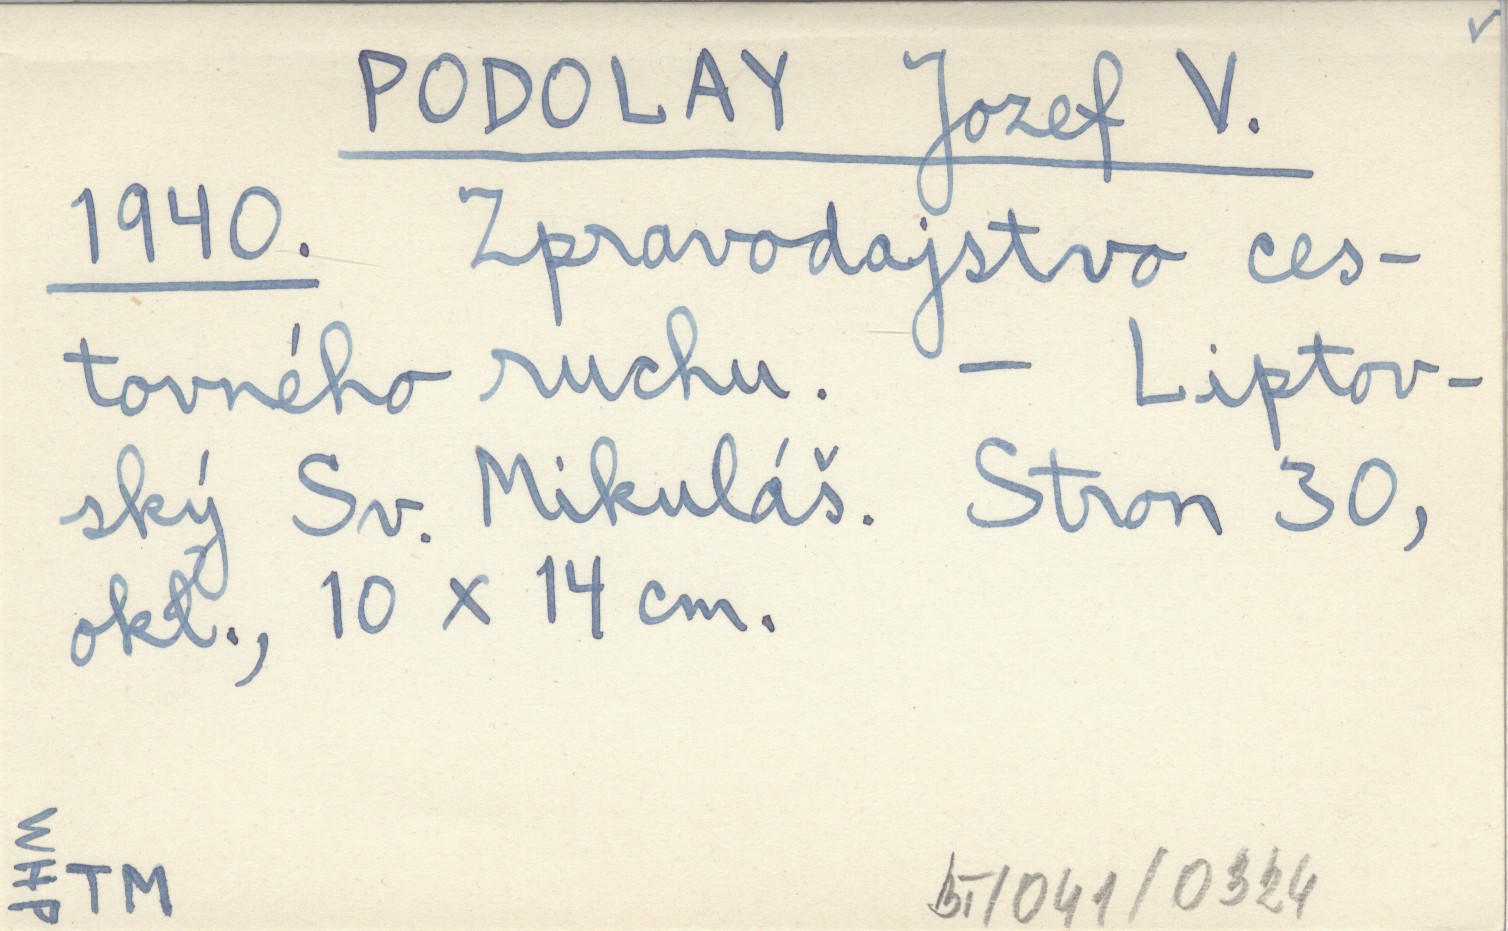 PODOLAY Jozef V.
1940. Zpravodajstvo ces-
tovného ruchu. – Liptov-
ský Sv. Mikuláš. Stron 30,
okł., 10 x 14 cm.
WHP
TM
/041/0324